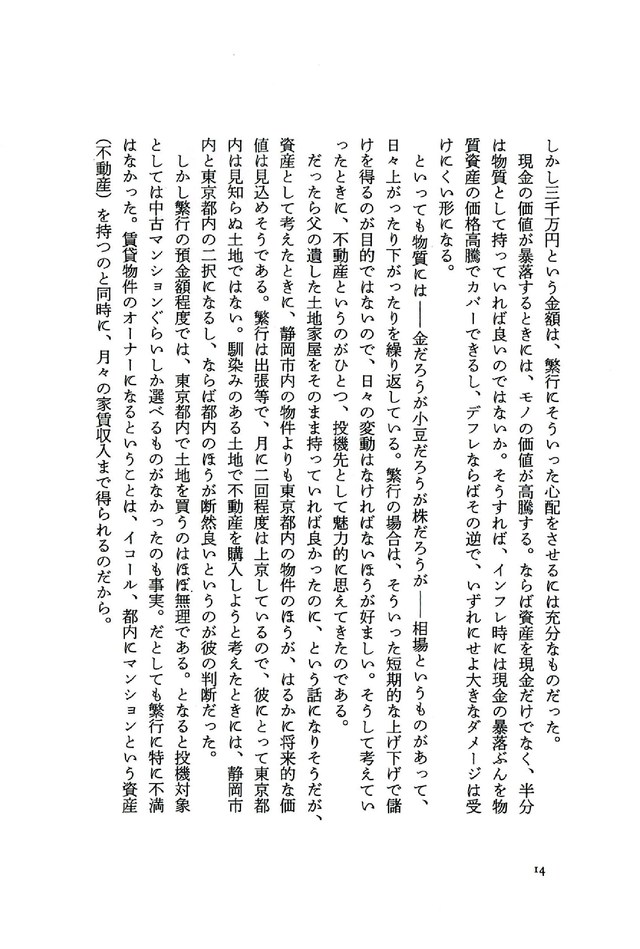 しかし三千万円という金額は、繁行にそういった心配をさせるには充分なものだった。
　現金の価値が暴落するときには、モノの価値が高騰する。ならば資産を現金だけでなく、半分
は物質として持っていれば良いのではないか。そうすれば、インフレ時には現金の暴落ぶんを物
質資産の価格高騰でカバーできるし、デフレならばその逆で、いずれにせよ大きなダメージは受
けにくい形になる。
　といっても物質には――金だろうが小豆だろうが株だろうが――相場というものがあって、
日々上がったり下がったりを繰り返している。繁行の場合は、そういった短期的な上げ下げで儲
けを得るのが目的ではないので、日々の変動はなければないほうが好ましい。そうして考えてい
ったときに、不動産というのがひとつ、投機先として魅力的に思えてきたのである。
　だったら父の遺した土地家屋をそのまま持っていれば良かったのに、という話になりそうだが、
資産として考えたときに、静岡市内の物件よりも東京都内の物件のほうが、はるかに将来的な価
値は見込めそうである。繁行は出張等で、月に二回程度は上京しているので、彼にとって東京都
内は見知らぬ土地ではない。馴染みのある土地で不動産を購入しようと考えたときには、静岡市
内と東京都内の二択になるし、ならば都内のほうが断然良いというのが彼の判断だった。
　しかし繁行の預金額程度では、東京都内で土地を買うのはほぼ無理である。となると投機対象
としては中古マンションぐらいしか選べるものがなかったのも事実。だとしても繁行に特に不満
はなかった。賃貸物件のオーナーになるということは、イコール、都内にマンションという資産
（不動産）を持つのと同時に、月々の家賃収入まで得られるのだから。
14